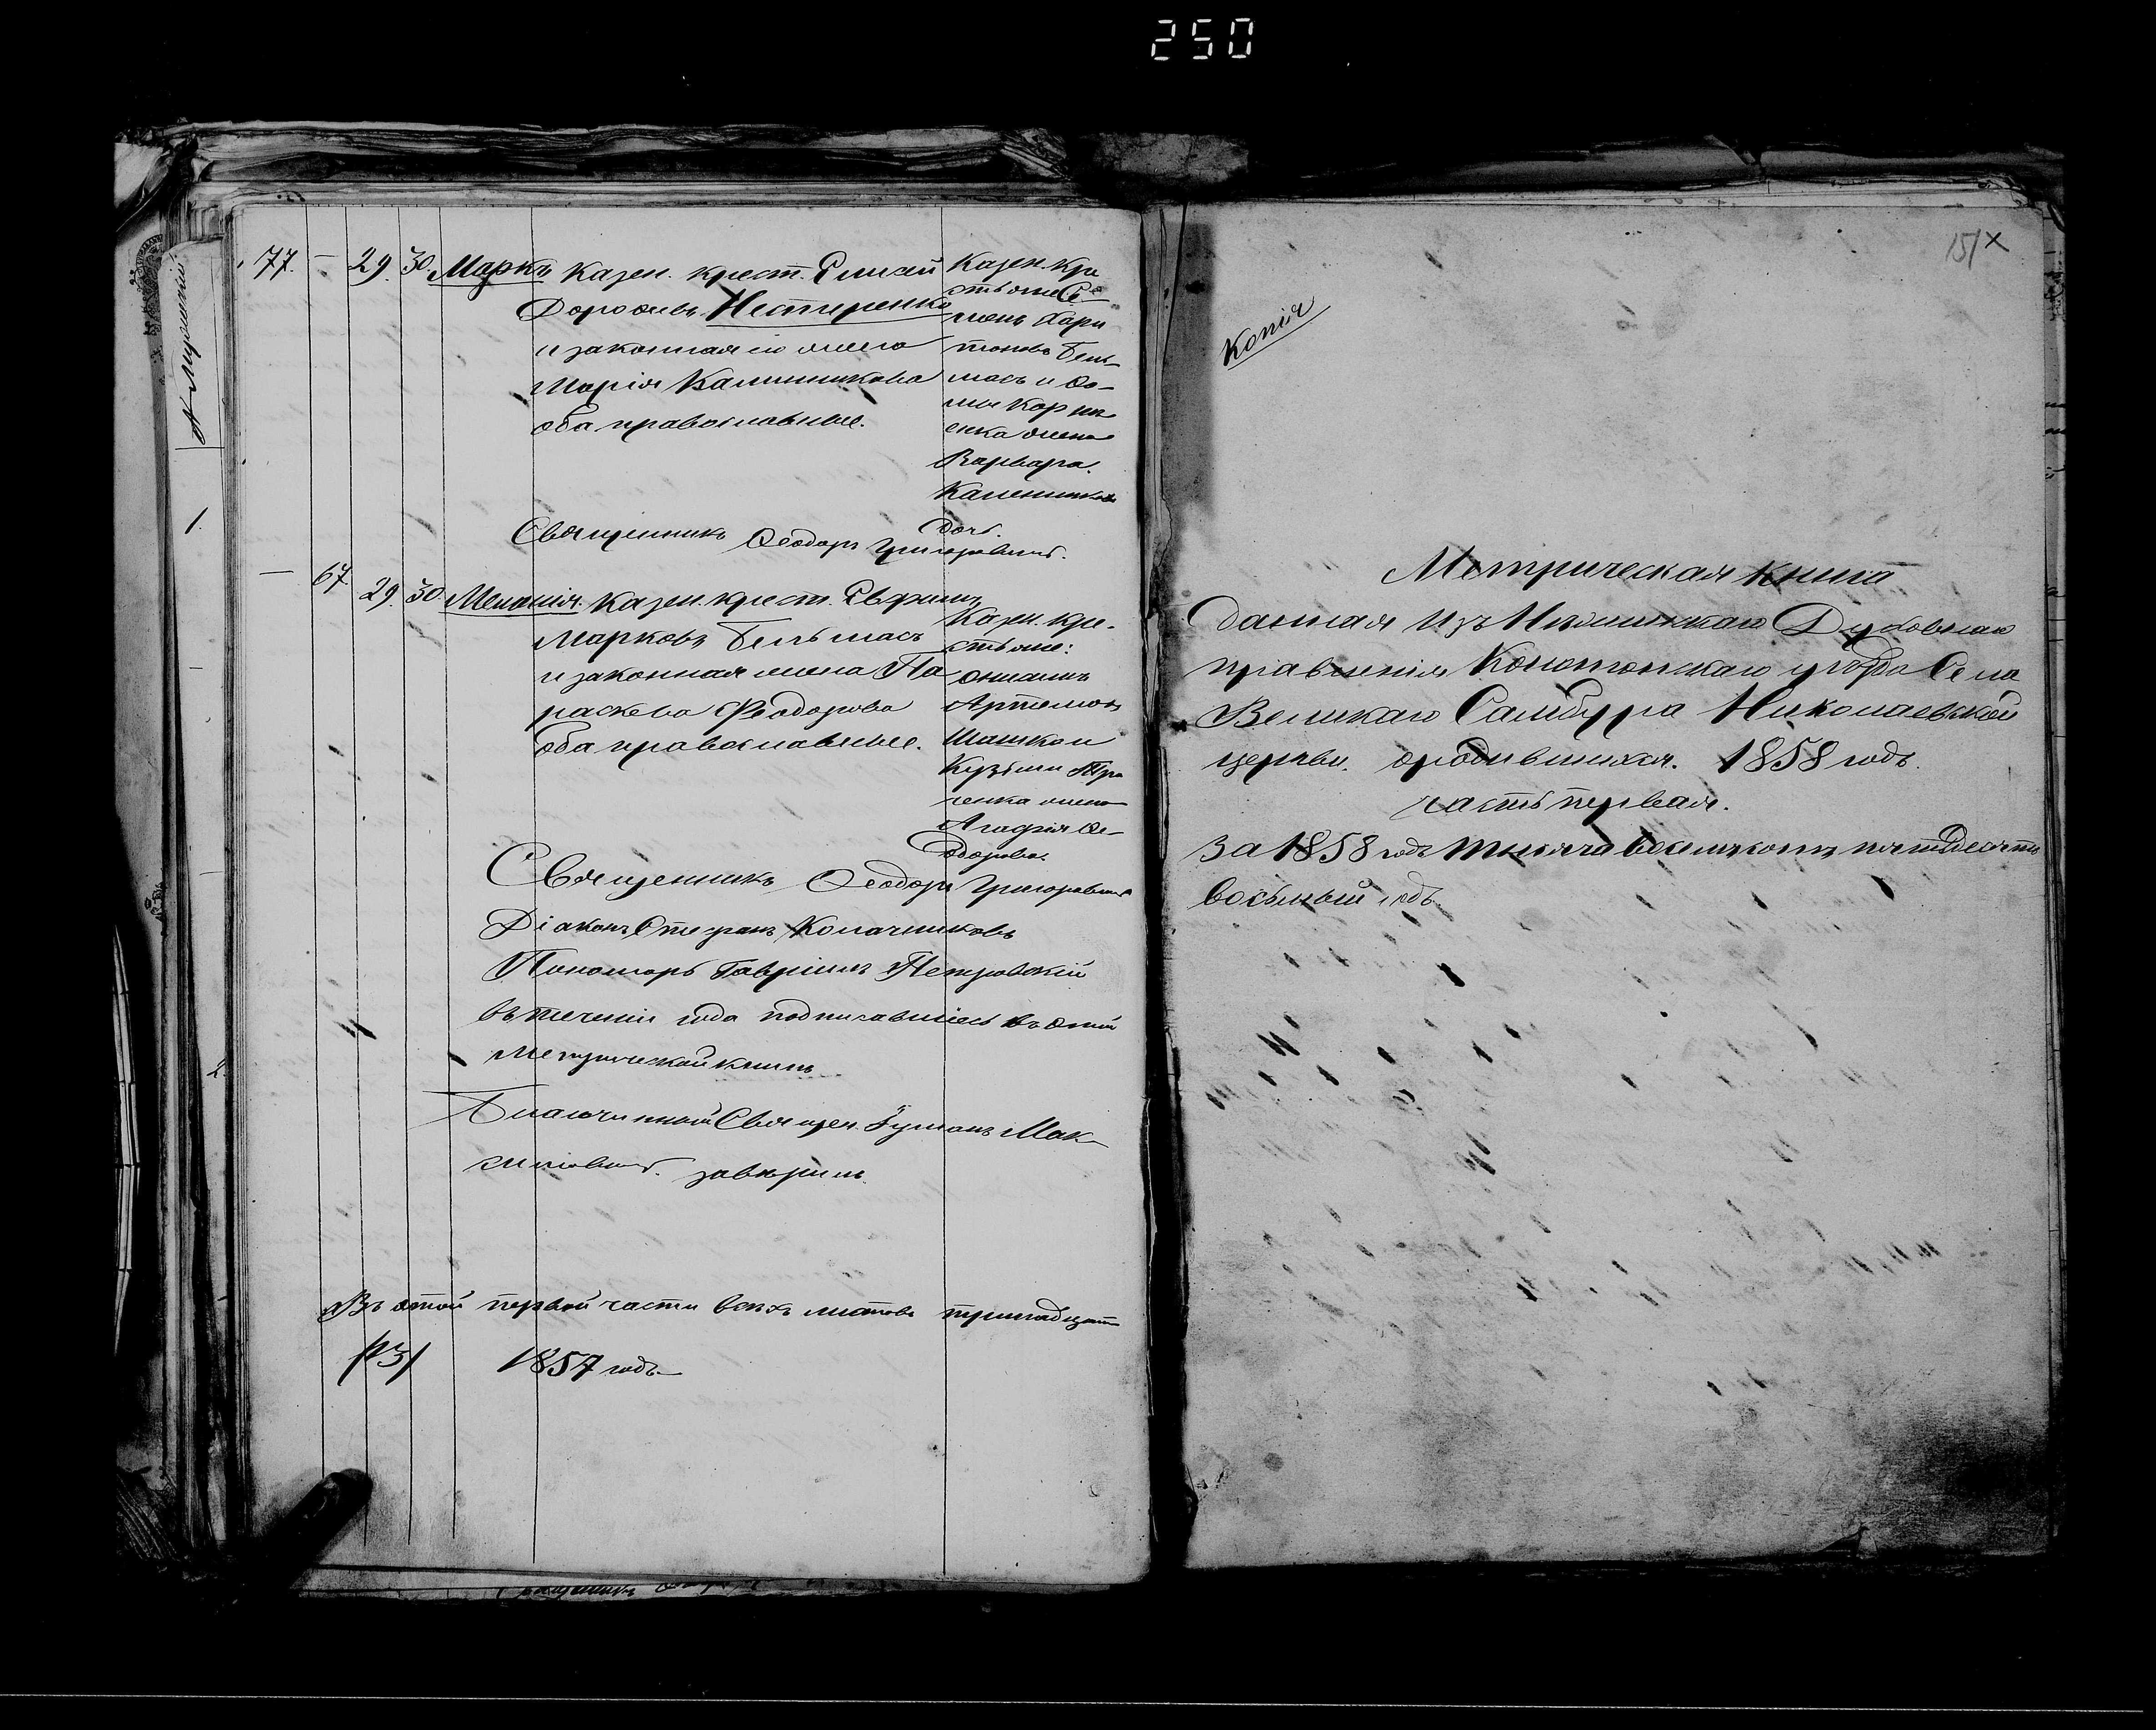 250
А Мужескій
1.
2.
77. — 29. 30. Маркъ Казен. крест. Елисей
Дорофѣевъ Нестеренко
и законная его жена
Марія Калинникова
оба православные.
Казен. кре
стьяне Се
менъ Хари
тоновъ Бель
масъ и Ѳо-
мы Корни
енка жена
Варвара
Калинникова
дочь.
Священникъ Ѳеодоръ Григоровичъ.
— 67. 29. 30. Меланія. Казен. крест. Евфимъ
Марковъ Бельмасъ
и законная жена Па
раскева Феодорова
оба православные.
Казен. кре-
стьяне:
Артемонъ
Шашко и
Кузьмы
ченка жена
Агафія Ѳе-
одорова.
Священникъ Ѳеодоръ Григоровичъ
Діаконъ Стефанъ Колачниковъ
Пономарь Гавріилъ Петровскій
въ теченіи года подписавшіесь въ этой
метрической книгѣ
Благочинный Священ. Мак-
симовичъ. завѣрилъ.
Въ этой первой части всѣхъ листовъ тринадцать
/13/ 1857 годъ.
151 х
Копія
Метрическая книга
данная изъ Нѣжинскаго Духовнаго
правленія Конотопскаго уѣзда Села
Великаго Самбура Николаевской
церкви. о родившихся. 1858 годъ.
часть первая.
За 1858 годъ тысяча восемьсотъ пятьдесятъ
восьмый годъ.